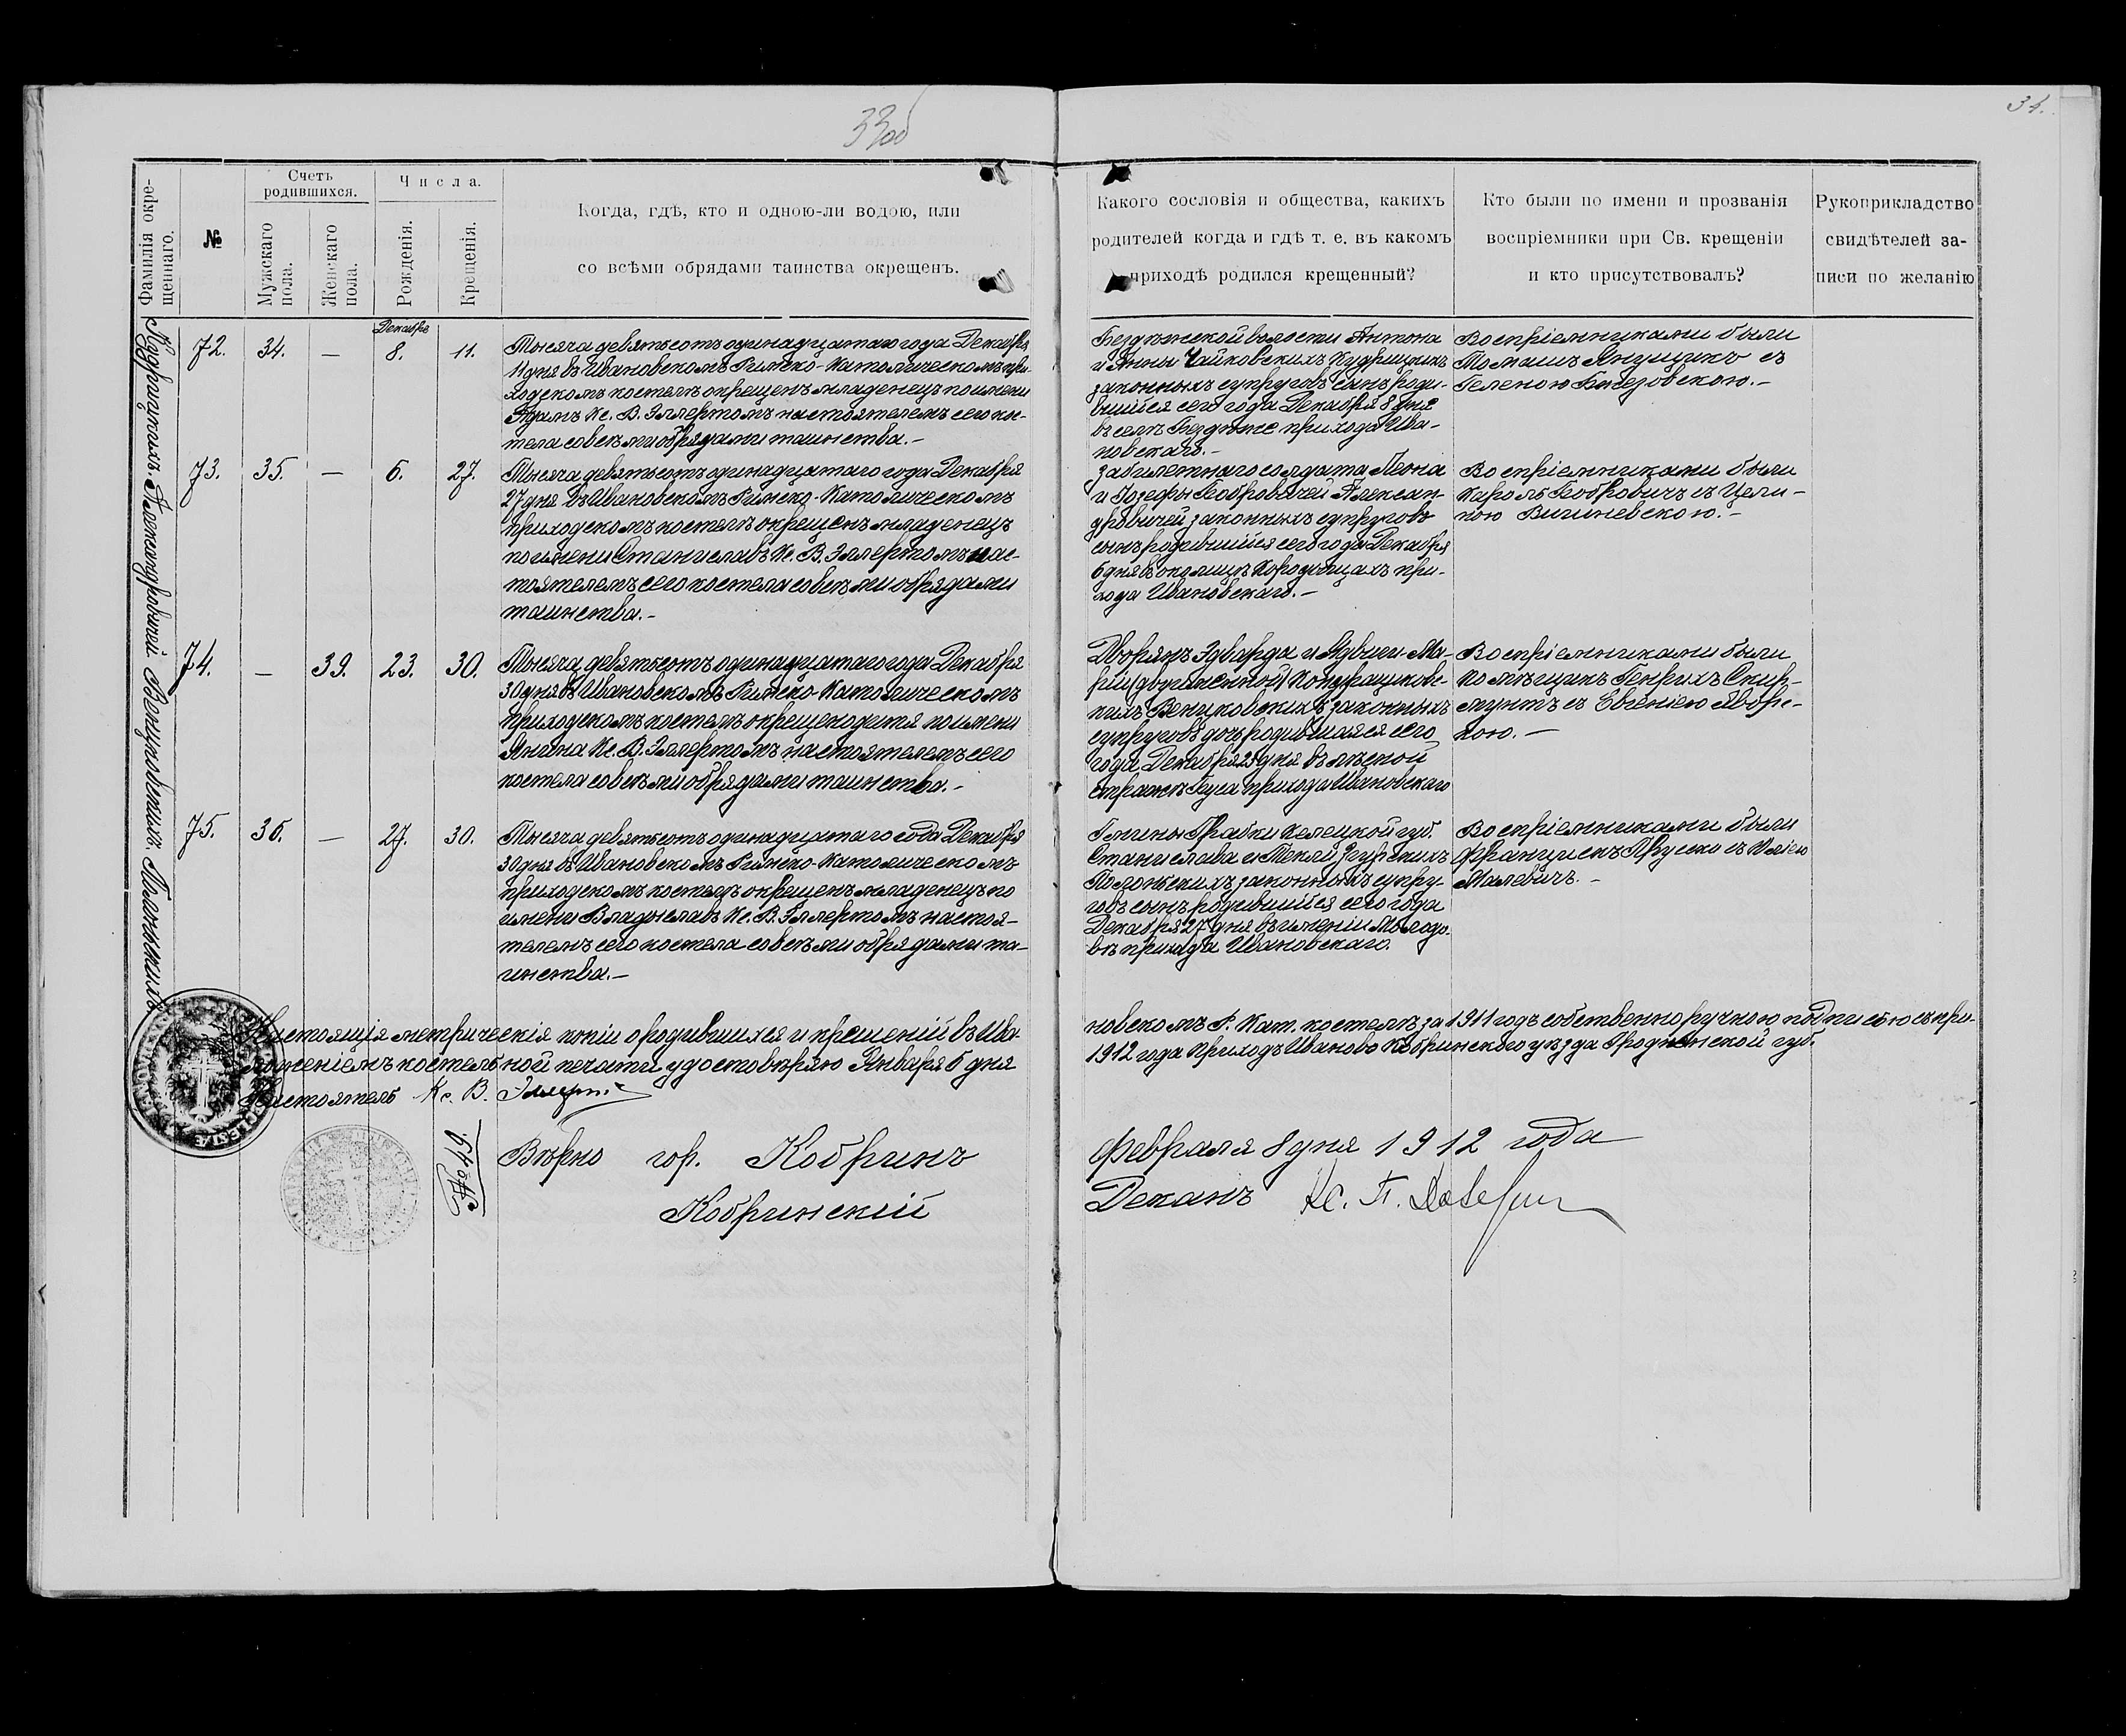 33об
34.
Фамилія окре-
щеннаго.
№
Счетъ
родившихся.
Мужскаго
пола.
Женскаго
пола.
Числа.
Рожденія.
Крещенія.
Когда, гдѣ, кто и одною-ли водою, или
со всѣми обрядами таинства окрещенъ.
Какого сословія и общества, какихъ
родителей когда и гдѣ т. е. въ какомъ
приходѣ родился крещенный?
Кто были по имени и прозванія
воспріемники при Св. крещеніи
и кто присутствовалъ?
Рукоприкладство
свидѣтелей за-
писи по желанію
Кудрицкихъ. Александровичей. Венцковскихъ. Полонскихъ
Декабрь
72. 34. — 8. 11.
Тысяча девятьсотъ одинадцатаго года Декабря
11 дня въ Ивановскомъ Римско-Католическомъ при-
ходскомъ костелѣ окрещенъ младенецъ по имени
Адамъ Кс. В. Эллертомъ настоятелемъ сего кос-
тела со всѣми обрядами таинства.-
Бездѣжской волости Антона
и Анны Чайковскихъ Кудрицкихъ
законныхъ супруговъ сынъ роди-
вшійся сего года Декабря 8 дня
въ селѣ Бездѣже прихода Ива-
новскаго.-
Воспріемниками были
Томашъ Янущикъ съ
Геленою.-
73. 35. — 6. 27.
Тысяча девятьсотъ одинадцатаго года Декабря
27 дня въ Ивановскомъ Римско-Католическомъ
приходскомъ костелѣ окрещенъ младенецъ
по имени Станиславъ Кс. В. Эллертомъ нас-
тоятелемъ сего костела со всѣми обрядами
таинства.-
Забилетнаго солдата Леона
и Іозефы Бобровичей Алексан-
дровичей законныхъ супруговъ
сынъ родившійся сего года Декабря
6 дня въ околицѣ Хородищахъ при-
хода Ивановскаго.-
Воспріемниками были
Кароль Бобровичъ съ Цели-
ною Вишневскою.-
74. — 39. 23. 30.
Тысяча девятьсотъ одинадцатаго года Декабря
30 дня въ Ивановскомъ Римско-Католическомъ
приходскомъ костелѣ окрещено дитя по имени
Янина Кс. В. Эллертомъ настоятелемъ сего
костела со всѣми обрядами таинства.-
Дворянъ Эдварда и Ядвиги Ма-
ріи (двуименной) Кондрацковс-
кихъ Венцковскихъ законныхъ
супруговъ дочь родившаяся сего
года Декабря 23 дня въ лѣсной
стражѣ прихода Ивановскаго
Воспріемниками были
помѣщикъ Генрихъ Скир-
мунтъ съ Евгеніею Яворс-
кою.-
75. 36. — 27. 30.
Тысяча девятьсотъ одинадцатаго года Декабря
30 дня въ Ивановскомъ Римско-Католическомъ
приходскомъ костелѣ окрещенъ младенецъ по
имени Владиславъ Кс. В. Эллертомъ настоя-
телемъ сего костела со всѣми обрядами та-
инства.-
Гмины Грабки Келецкой губ.
Станислава и Текли Згурскихъ
Полонскихъ законныхъ супру-
говъ сынъ родившійся сего года
Декабря 27 дня въ имѣніи Молодо-
вѣ прихода Ивановскаго.
Воспріемниками были
Францискъ Пруско съ Юліею
Малевичъ.-
Настоящія метрическія копіи о родившихся и крещеній въ Ива-
новскомъ Р. Кат. костелѣ за 1911 годъ собственноручною подписью съ при-
ложеніемъ костельной печати удостовѣряю Января 6 дня
1912 года Приходъ Иваново Кобринскаго уѣзда Гродненской губ.
Настоятель Кс. В. Эллертъ
№ 49.
Вѣрно гор. Кобринъ
Февраля 8 дня 1912 года
Кобринскій
Деканъ Кс. П.